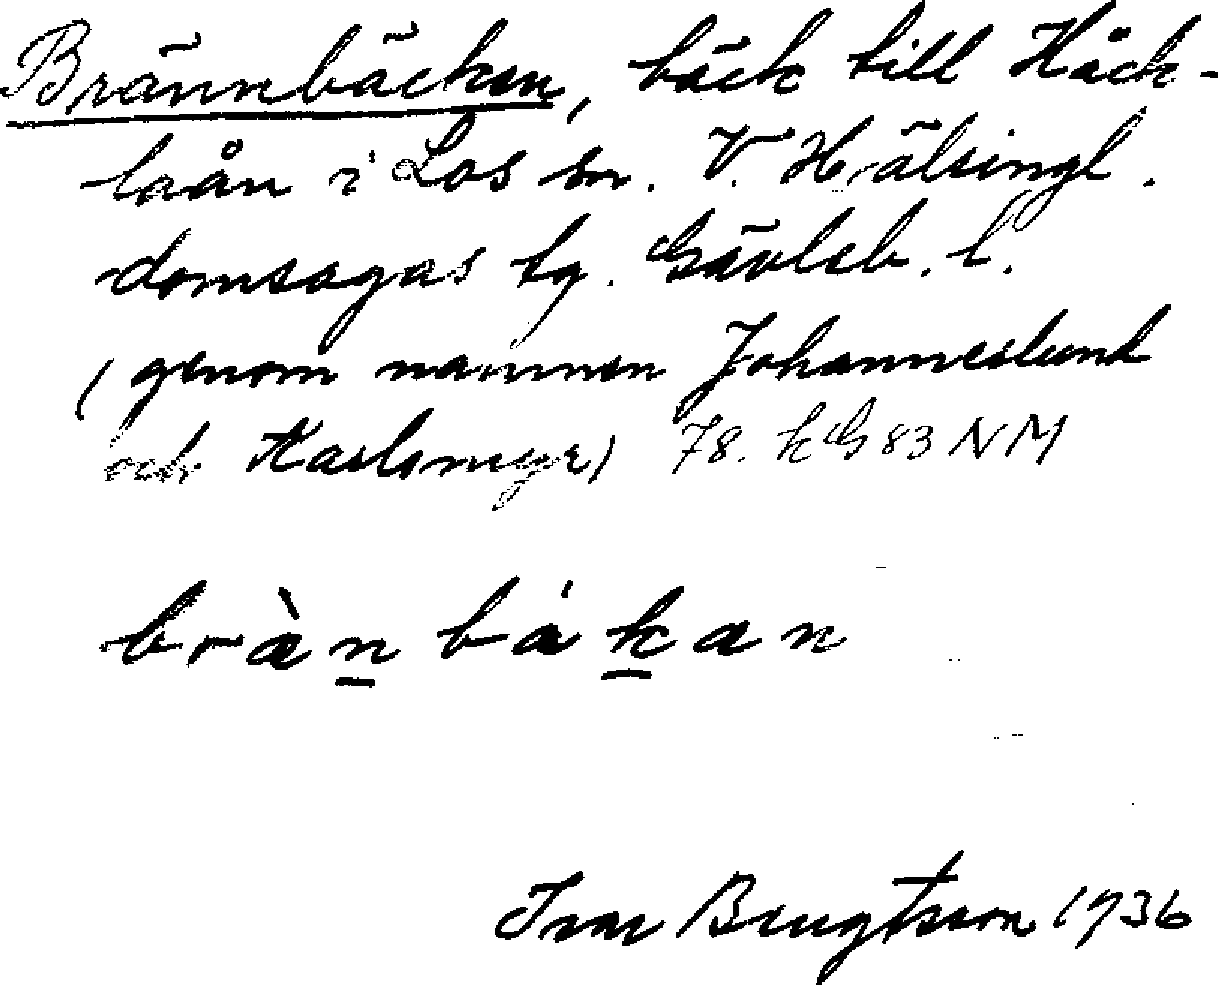 Brännbäcken, bäck till Håck-
laån i Los sn. V. Hälsingl.
domsagas tg. Gävleb. l.
(genom namnen Johanneslund
och Karlsmyr) 78. kG 83 NM
brànbákan
Ivar Bengtsson 1936